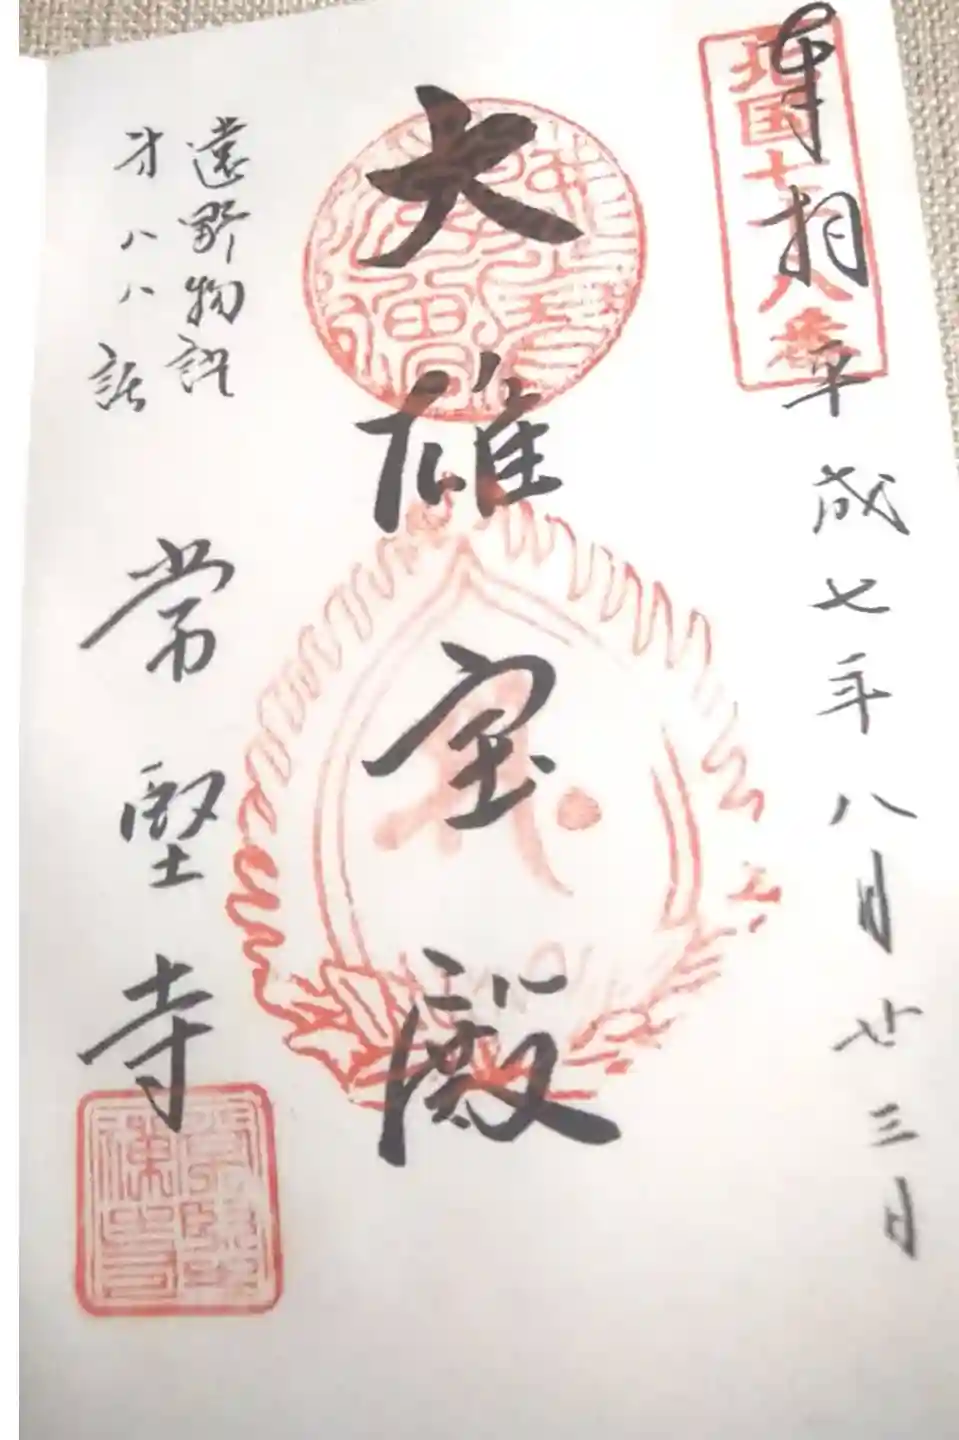 奉拝
北国十八番
平成七年八月廿三日
大雄宝殿
遠野物語
才八八話
常堅寺